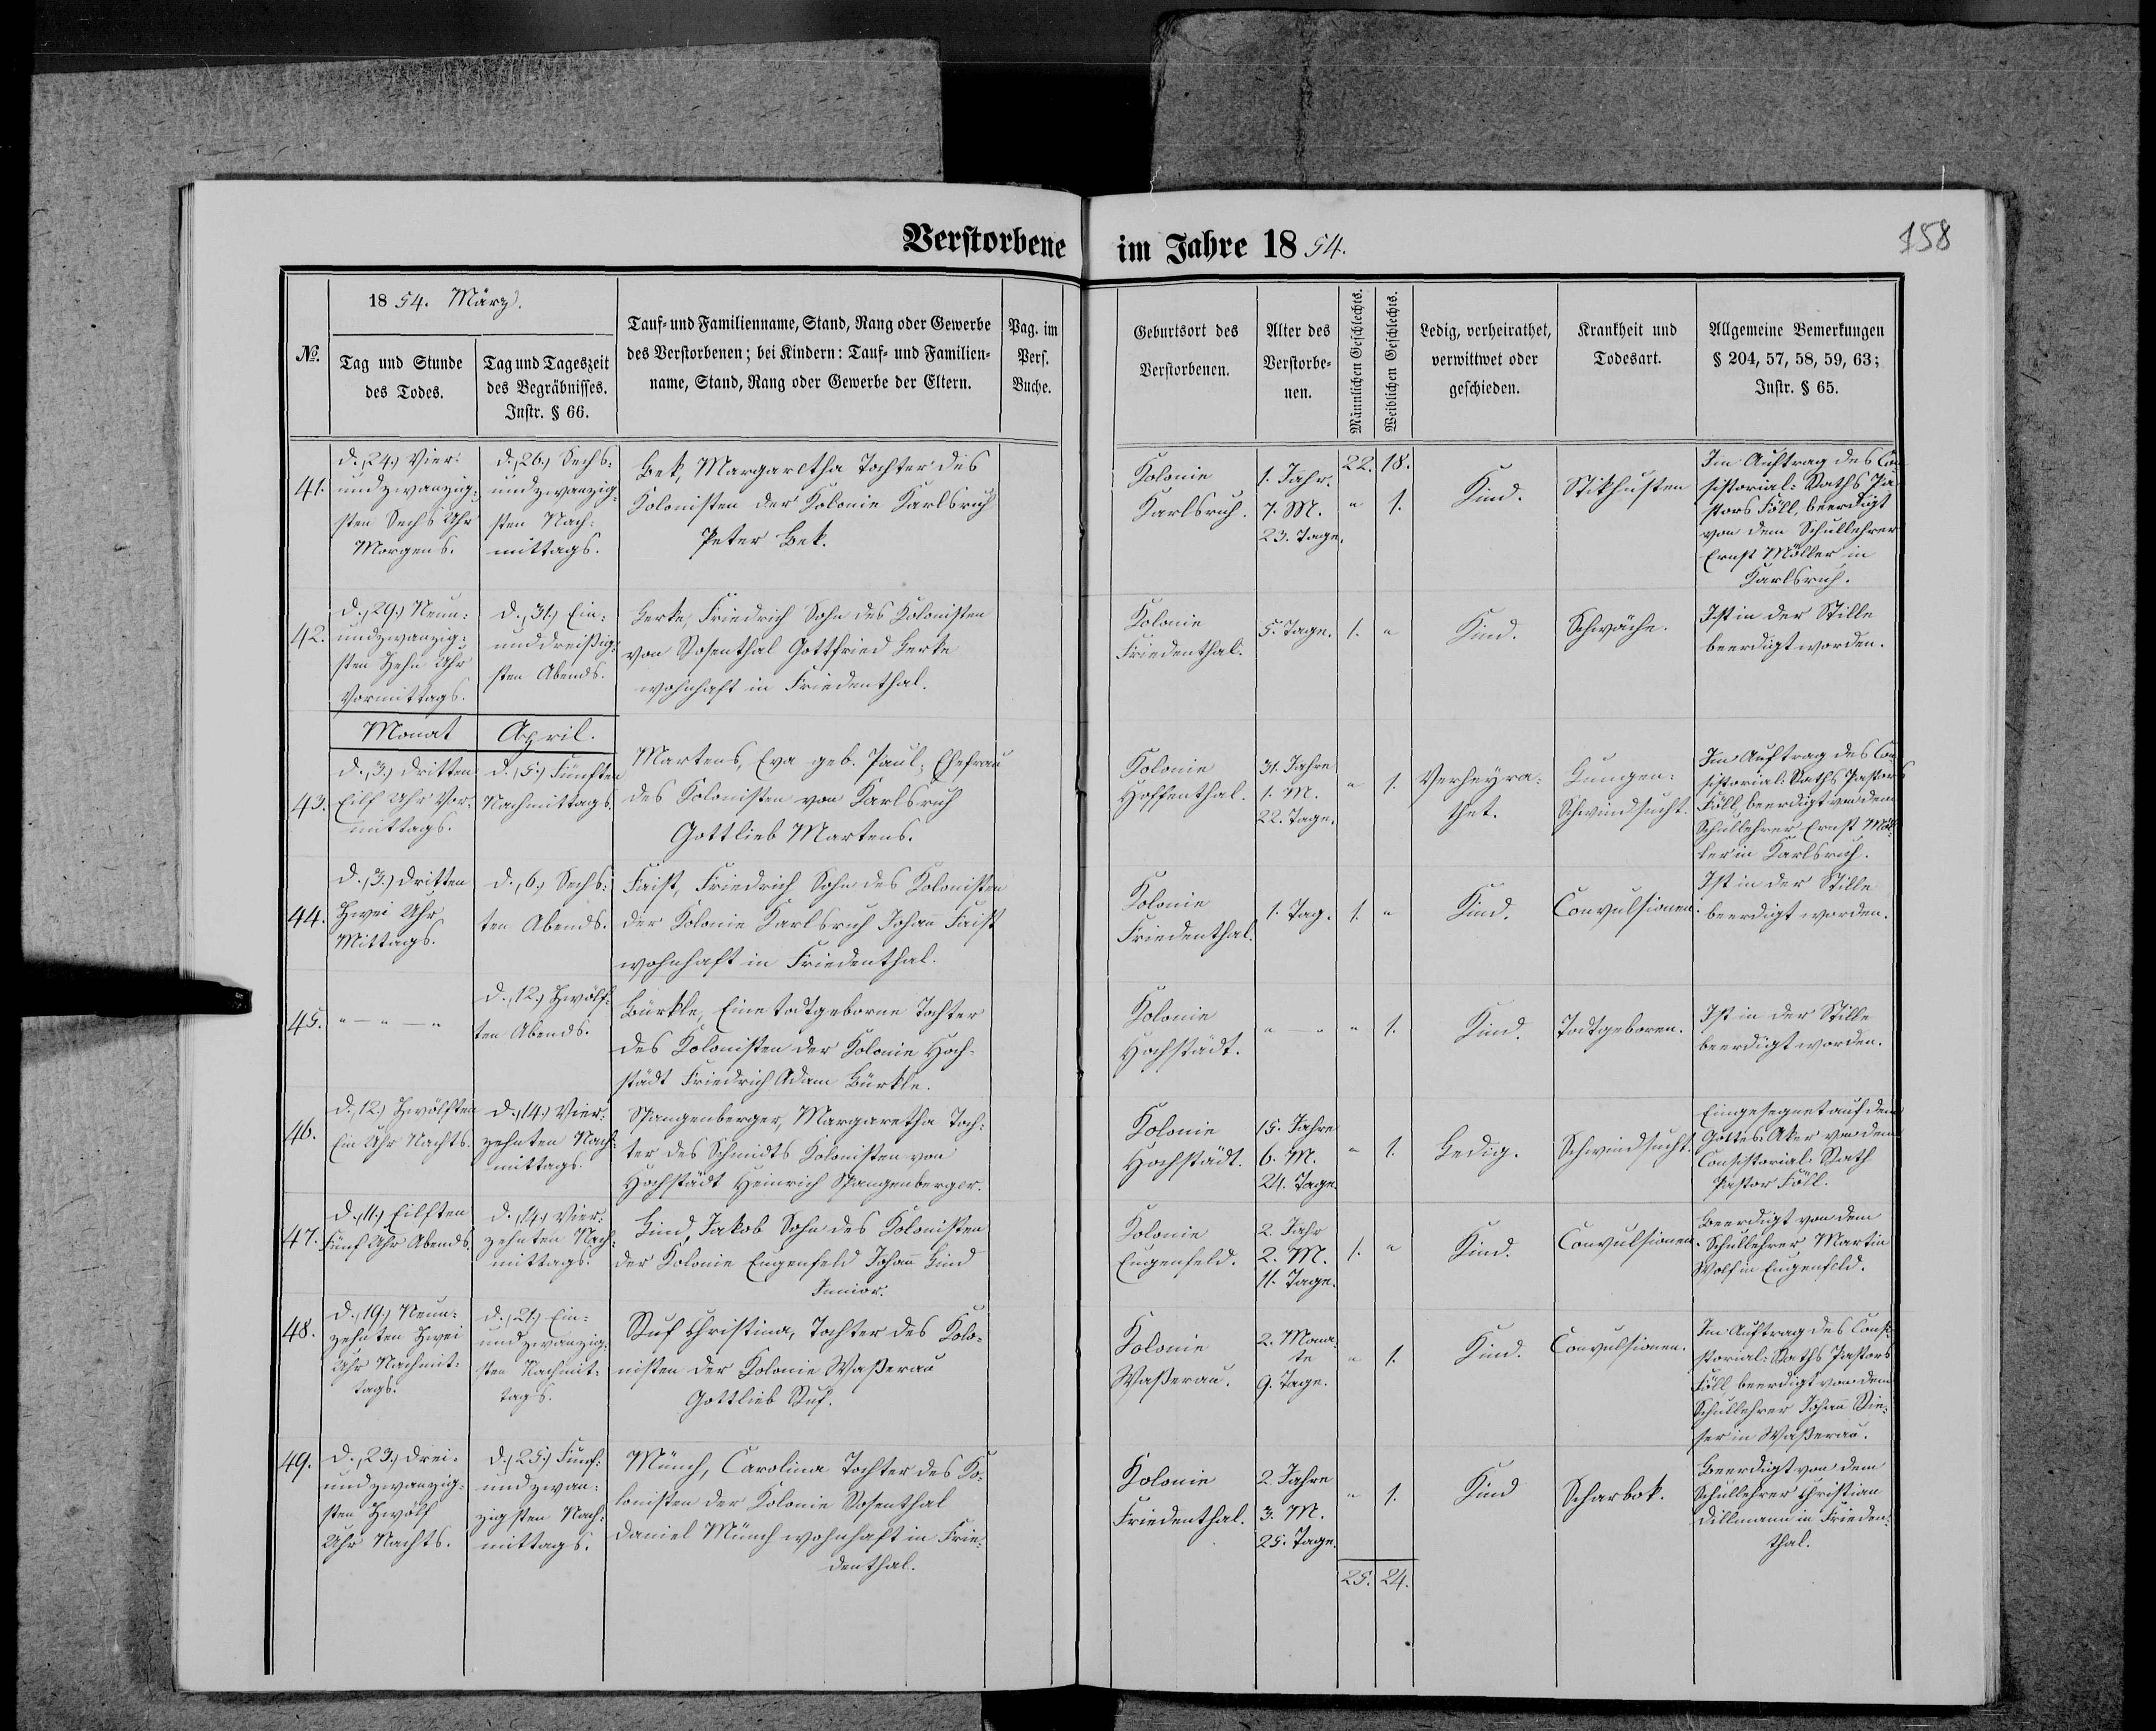 Verstorbene im Jahre 1854.
158
1854. März.
№.
Tag und Stunde
des Todes.
Tag und Tageszeit
des Begräbnisses.
Instr. § 66.
Tauf- und Familienname, Stand, Rang oder Gewerbe
des Verstorbenen; bei Kindern: Tauf- und Familien-
name, Stand, Rang oder Gewerbe der Eltern.
Pag. im
Pers.
Buche.
Geburtsort des
Verstorbenen.
Alter des
Verstorbe-
nen.
Männlichen Geschlechts.
Weiblichen Geschlechts.
Ledig, verheirathet,
verwittwet oder
geschieden.
Krankheit und
Todesart.
Allgemeine Bemerkungen
§ 204, 57, 58, 59, 63;
Instr. § 65.
22. 18.
41.
d., 24.) Vier:
undzwanzig:
sten Sechs Uhr
Morgens.
d., 26.) Sechs:
undzwanzig:
sten Nach:
mittags.
Bek, Margaretha Tochter des
Kolonisten der Kolonie Karlsruh
Peter Bek.
Kolonie
Karlsruh.
1. Jahr.
7. M.
23. Tage.
" 1.
Kind.
Stikhusten
Im Auftrag des Con
sistorial-Raths Pa
stors Föll, beerdigt
von dem Schullehrer
Ernst Möller in
Karlsruh.
42.
d., 29.) Neun:
undzwanzig:
sten Zehn Uhr
Vormittags.
d., 31.) Ein:
unddreißig:
sten Abends.
Gerke, Friedrich Sohn des Kolonisten
von Rosenthal Gottfried Gerke
wohnhaft in Friedenthal.
Kolonie
Friedenthal.
5. Tage.
1. "
Kind.
Schwäche.
Ist in der Stille
beerdigt worden.
Monat April.
43.
d., 3.) Dritten
Eilf Uhr Vor:
mittags.
d., 5.) Fünften
Nachmittags.
Martens, Eva geb. Paul, Ehefrau
des Kolonisten von Karlsruh
Gottlieb Martens.
Kolonie
Hoffenthal.
31. Jahre
1. M.
22. Tage.
" 1.
Verheyra:
thet.
Lungen:
Schwindsucht.
Im Auftrag des Con
sistorial-Raths Pastors
Föll, beerdigt von dem
Schullehrer Ernst Möl
ler in Karlsruh.
44.
d., 3.) Dritten
Zwei Uhr
Mittags.
d., 6.) Sechs:
ten Abends.
Faist, Friedrich Sohn des Kolonisten
der Kolonie Karlsruh Johan Faist
wohnhaft in Friedenthal.
Kolonie
Friedenthal.
1. Tag.
1. "
Kind.
Convulsionen.
Ist in der Stille
beerdigt worden.
45.
" — " — "
d., 12.) Zwölf:
ten Abends.
Bürkle, Eine todtgeborne Tochter
des Kolonisten der Kolonie Hoch-
städt Friedrich Adam Bürkle.
Kolonie
Hochstädt.
" — "
" 1.
Kind.
Todtgeboren.
Ist in der Stille
beerdigt worden.
46.
d., 12.) Zwölften
Ein Uhr Nachts.
d., 14.) Vier:
zehnten Nach:
mittags.
Spangenberger, Margaretha Toch:
ter des Schmidts Kolonisten von
Hochstädt Heinrich Spangenberger.
Kolonie
Hochstädt.
15. Jahre
6. M.
24. Tage.
" 1.
Ledig.
Schwindsucht.
Eingesegnet auf dem
Gottes-Aker von dem
Consistorial-Rath
Pastor Föll.
47.
d., 11.) Eilften
Fünf Uhr Abends.
d., 14.) Vier:
zehnten Nach:
mittags.
Kind, Jakob Sohn des Kolonisten
der Kolonie Eugenfeld Johan Kind
Junior.
Kolonie
Eugenfeld.
2. Jahr
2. M.
11. Tage.
1. "
Kind.
Convulsionen.
Beerdigt von dem
Schullehrer Martin
Wolf in Eugenfeld.
48.
d., 19.) Neun:
zehnten Zwei
Uhr Nachmit:
tags.
d., 21.) Ein:
undzwanzig:
sten Nachmit:
tags.
Ruf Christina, Tochter des Kolo:
nisten der Kolonie Waßerau
Gottlieb Ruf.
Kolonie
Waßerau.
2. Mona:
te
9. Tage.
" 1.
Kind.
Convulsionen.
Im Auftrag des Consi
storial-Raths Pastors
Föll beerdigt von dem
Schullehrer Johan
in Waßerau.
49.
d., 23.) Drei:
undzwanzig:
sten Zwölf
Uhr Nachts.
d., 25.) Fünf:
undzwan:
zigsten Nach:
mittags.
Münch, Carolina Tochter des Ko:
lonisten der Kolonie Rosenthal
Daniel Münch wohnhaft in Frie:
denthal.
Kolonie
Friedenthal.
2. Jahre
3. M.
25. Tage.
" 1.
Kind
Scharbok.
Beerdigt von dem
Schullehrer Christian
Dillmann in Frieden:
thal.
25. 24.